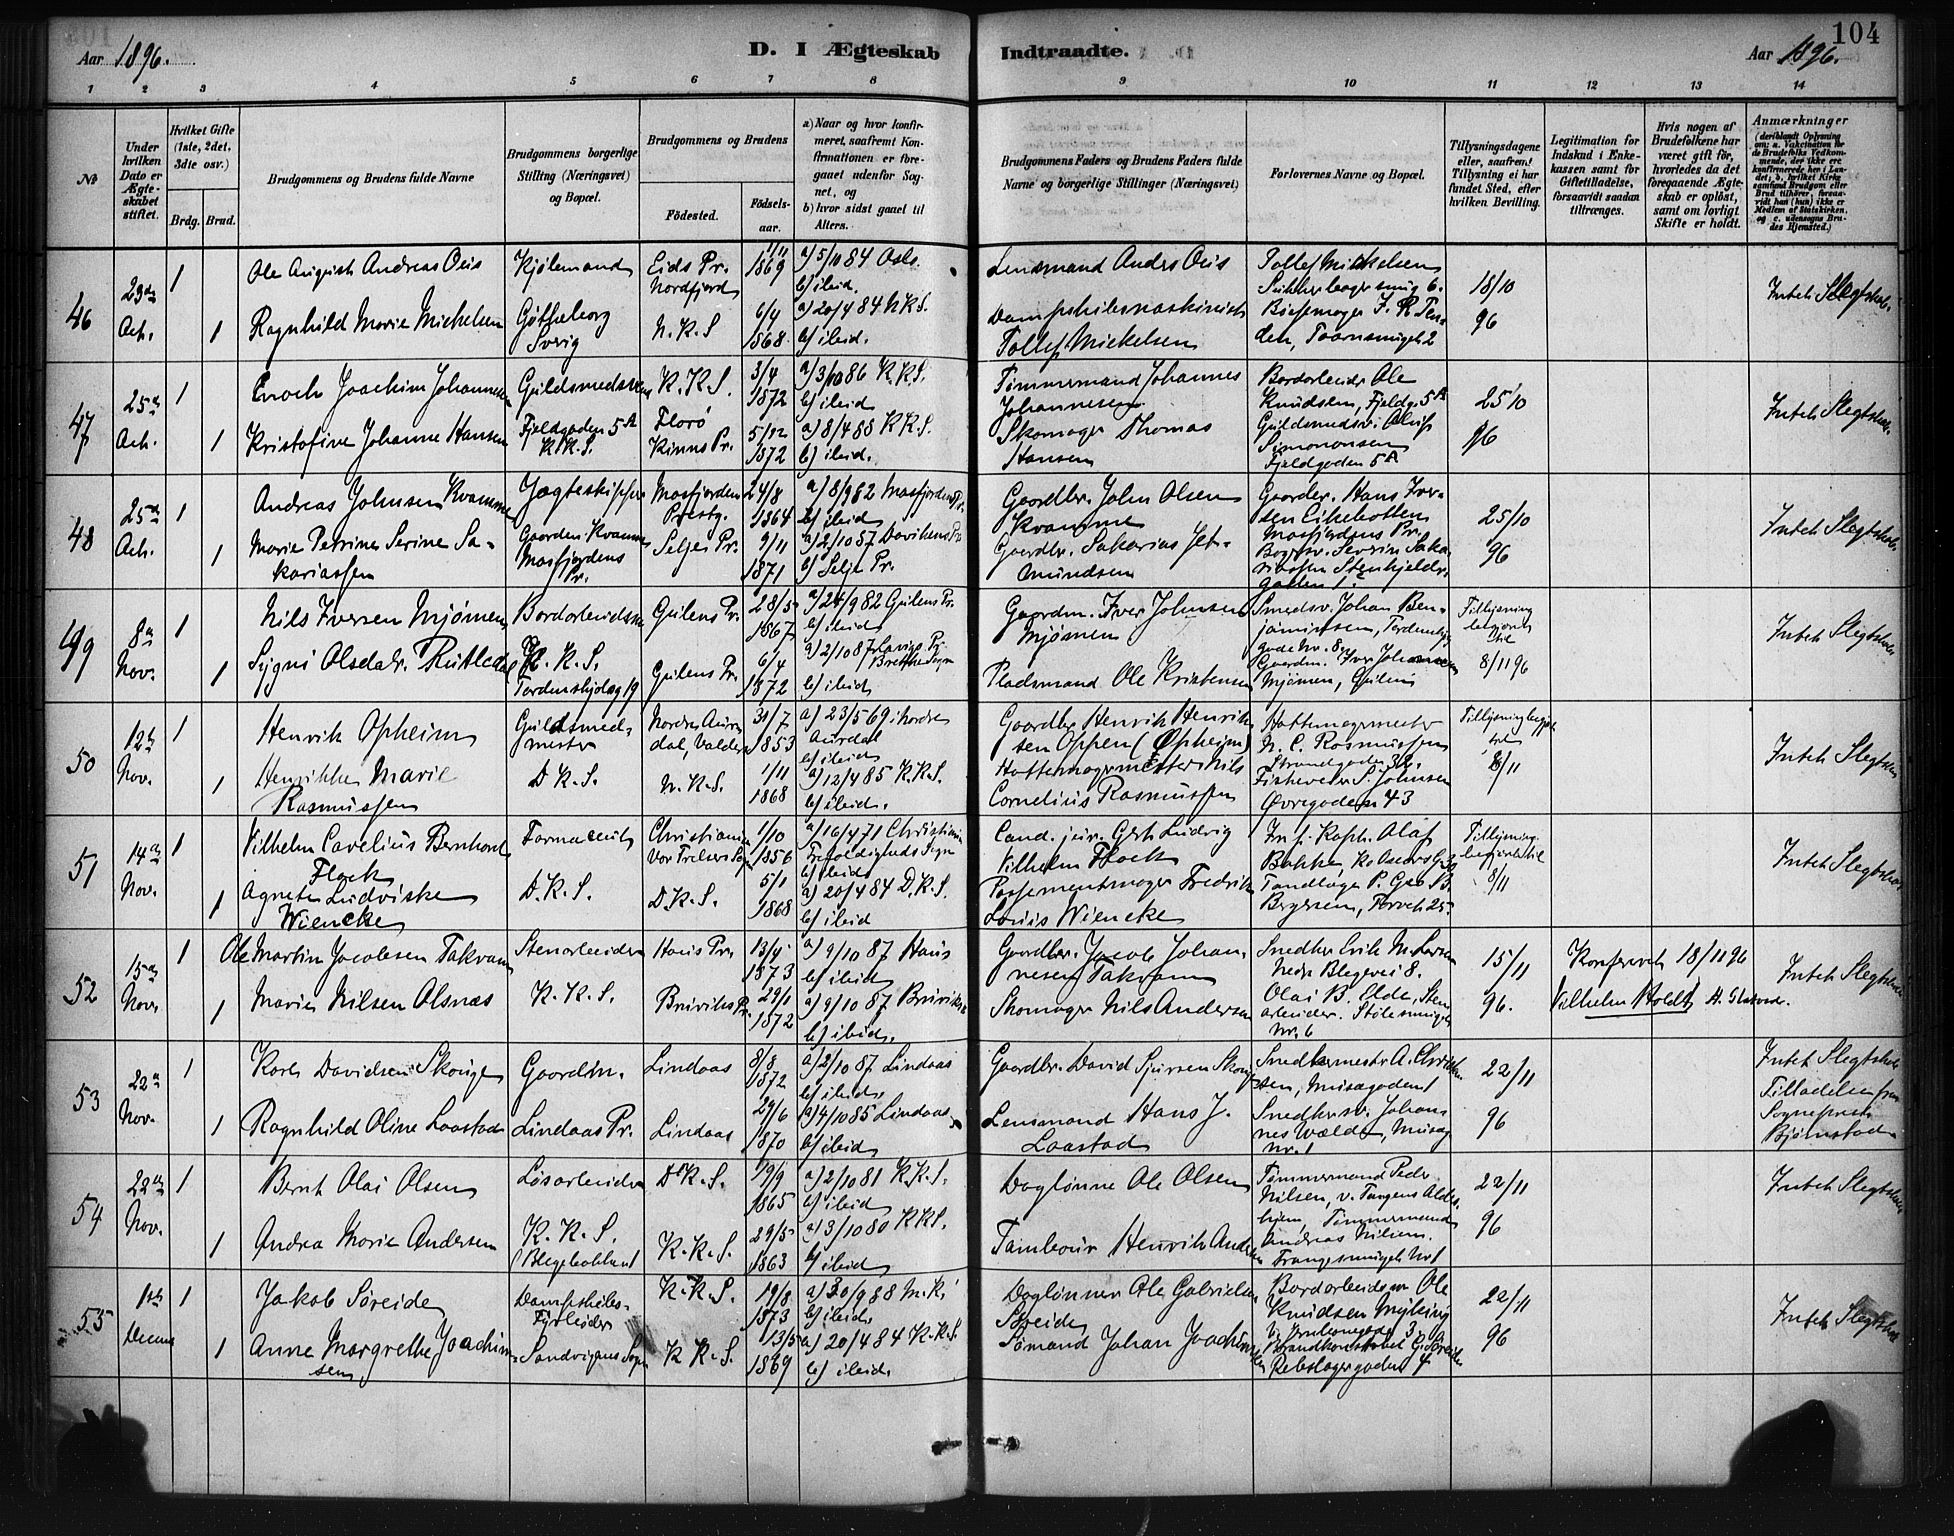 104
Aar 1896. D. I Ægteskab Indtraadte. Aar 1896.
1 2 3 4 5 6 7 8 9 10 11 12 13 14
No
Under hvilken Dato er Ægteskabet stiftet.
Hvilket Gifte (1ste, 2det, 3die osv.)
Brdg. Brud.
Brudgommens og Brudens fulde Navne
Brudgommens borgerlige Stilling (Næringsvei) og Bopæl.
Brudgommens og Brudens
Födested. Födselsaar.
a) Naar og hvor konfirmeret, saafremt Konfirmationen er foregaaet udenfor Sognet, og
b) hvor sidst gaaet til Alters.
Brudgommens Faders og Brudens Faders fulde Navne og borgerlige Stillinger (Næringsvei)
Forlovernes Navne og Bopæl.
Tillysningsdagene eller, saafremt Tillysning ei har fundet Sted, efter hvilken Bevilling.
Legitimation for Indskud i Enkekassen samt for Giftetilladelse, forsaavidt saadan tiltrænges.
Hvis nogen af Brudefolkene har været gift för, hvorledes da det foregaaende Ægteskab er oplöst, samt om lovligt Skifte er holdt.
Anmærkninger
(deriblandt Oplysning om: a. Vakcination for de Brudefolks Vedkommende, der ikke ere konfirmerede her i Landet; b. hvilket Kirkesamfund Brudgom eller Brud tilhörer, forsaavidt han (hun) ikke er Medlem af Statskirken, og c. udensogns Brudes Hjemsted.)
46
23de
Oct.
1
Ole August Andreas Ous
Kjölemand
Eids Pr.
Nordfjord
1/11
1869
a) 5/10 84 Oslo
b) ibid.
Lensmand Anders Ous
Tollef Mickelsen
18/10
Intet Slegtskab.
1
Ragnhild Marie Mickelsen
Gøtheborg
Sverig
N. K. S
6/4
1868.
a) 20/4 84 N.K.S.
b) ibid.
Dampskibsmaskinist
Tollef Mickelsen
96
47
25de
Oct.
1
Enoch Joachim Johannesen
Guldsmedsvend
K. K. S.
3/4
1872
a) 3/10 86 K.K.S.
b) ibid
Tømmermand Johannes
Johannesen
Bordarbeider Ole
Knudsen, Fjeldg. 5A
25/10
Intet Slegtskab.
1
Kristofine Johanne Hansen
Fjeldgaden 5A
K.K.S.
Florø
Kinns Pr.
5/12
1872
a) 8/4 88 K.K.S.
b) ibid.
Skomager Thomas
Hansen
Guldsmedsv. Oluf
Simononsen
Fjeldgaden 5A
96
48
25de
Oct.
1
Andreas Johnsen Kvamme
Jægteskipper
Masfjorden
Prestg.
24/8
1864
b) ibid
Gaardbr. John Olsen
Kvamme
Gaardbr. Hans Iversen
25/10
Intet Slegtskab.
1
Marie Petrine Serine Sakariassen
Gaarden Kvamme
Masfjordens
Pr.
Selje Pr.
9/11
1871
a) 2/10 87 Davikens Pr.
b) Selje Pr.
Gaardbr. Sakarias Jetmundsen
96
49
8de
Nov.
1
Nils Iversen Mjømen
Bordarbeidsm
Gulens Pr.
28/5
1867
a) 24/9 82 Gulens Pr.
b) ibid
Gaardm. Iver Johnsen
Mjømen
Smedsv. Johan Benjaminsen, Tordenskjgade Nr. 8.
Tillysning
begjæret
til
Intet Slegtskab
1
Sygni Olsdatr. Rutledal
K. K. S.
Tordenskjoldsg 19
Gulens Pr.
6/4
1872
a) 2/10 87 Lavigs Pr.
b) ibid
Pladsmand Ole Kristensen
Gaardm. Iver Johannesen
Mjømen, Gulens
8/11 96
50
12te
Nov.
1
Henrik Opheim
Guldsmedmester
Nordre Aurdal, Valders
31/7
1853
a) 23/5 69 i Nordre
Aurdal
b) ibid
Gaardbr Henrik Henriksen Oppen (Opheim)
Hattemagermester
N. C. Rasmussen
Strandgaden 32.
8/11
Intet Slegtskab
1
Henrikke Marie
Rasmussen
D. K. S.
N. K. S.
1/11
1868
a) 12/4 85 K.K.S.
b) ibid.
Hattemagermester Nils
Cornelius Rasmussen
S. Johnsen
Øvregaden 43
51
14de
Nov.
1
Vilhelm Cavelius Bernhard
Flock
Farmaceut
Christiania
Vor Frelsers Sogn
1/10
1856
a) 16/4 71 Christiania
Trefoldigheds Sogn
b) ibid
Cand. jur. Gert Ludvig
Vilhelm Flock
Olaf
Bakke
Tillysning
begjæret til
8/11
Intet Slegtskab
1
Agnete Ludviske
Wiencke
D. K. S.
D.K.S.
5/1
1868
a) 20/4 84 D.K.S.
b) ibid
Possementmager Fredrik
Louis Wiencke
Tandlæge P. Geo B.
Bergesen, Torvet 25.
52
15de
Nov.
1
Ole Martin Jacobsen Takvam
Stenarbeider
Haus Pr.
13/4
1873
a) 9/10 87 Haus
b) ibid.
Gaardbr. Jacob Johannesen Takvam
Nedre Blegevei 8.
15/11
Konfereret 18/11 96
Vilhelm Holdt
Intet Slegtskab
1
Marie Nilsen Alsnæs
K. K. S.
Bruvikens Pr.
29/1
1872
a) 9/10 87 Bruvik
b) ibid.
Skomager Nils Andersen
Olai B. Elde, Stenarbeider. Stølesmuget
Nr. 6
96.
53
22de
Nov.
1
Karl Davidsen Skauge
Gaardm.
Lindaas
8/8
1872
a) 2/10 87 Lindaas
b) ibid.
Gaardbr. David Sjursen Skauge
Snedkermester A. Christensen, Musægaden 1
22/11
Intet Slegtskab
Tilladelse fra
Sogneprest
Bjørnstad
1
Ragnhild Oline Laastad
Lindaas Pr.
Lindaas
29/6
1870
a) 4/10 85 Lindaas
b) ibid
Lensmand Hans J.
Laastad
Snedkersv. Johannes Wælde, Musæg
Nr. 1
96
54
22de
Nov.
1
Bernt Olai Olsen
Løsarbeider
D.K.S.
19/9
1865
a) 2/10 81 K.K.S.
b) ibid.
Daglønne Ole Olsen
Tømmermand Peder
Nilsen, v. Tangens Aldershjem
22/11
Intet Slegtskab
1
Andra Marie Andersen
K. K. S.
K.K.S.
29/5
1863
a) 3/10 80 KKS.
b) ibid
Tambour Henrik Andersen
Tømmermand
Andreas Nilsen.
Trangesmuget Nr 1
96
55
1ste
Decem
1
Jakob Søreide
Dampskibs-
Fyrbøder
K.K.S.
19/8
1873
a) 30/9 88 M.K.
b) ibid.
Daglønner Ole Gabrielsen
Søreide
Bordarbeidsm Ole
Knudsen Myking
22/11
Intet Slegtskab
1
Anne Margrethe Joachimsen
Sandvigens Sogn
K K. S.
13/5
1869
a) 20/4 84 K.K.S.
b) ibid.
Sømand Johan Joachimsen
Brandkonstabel G. Søreide
Rebslagergaden 4
96